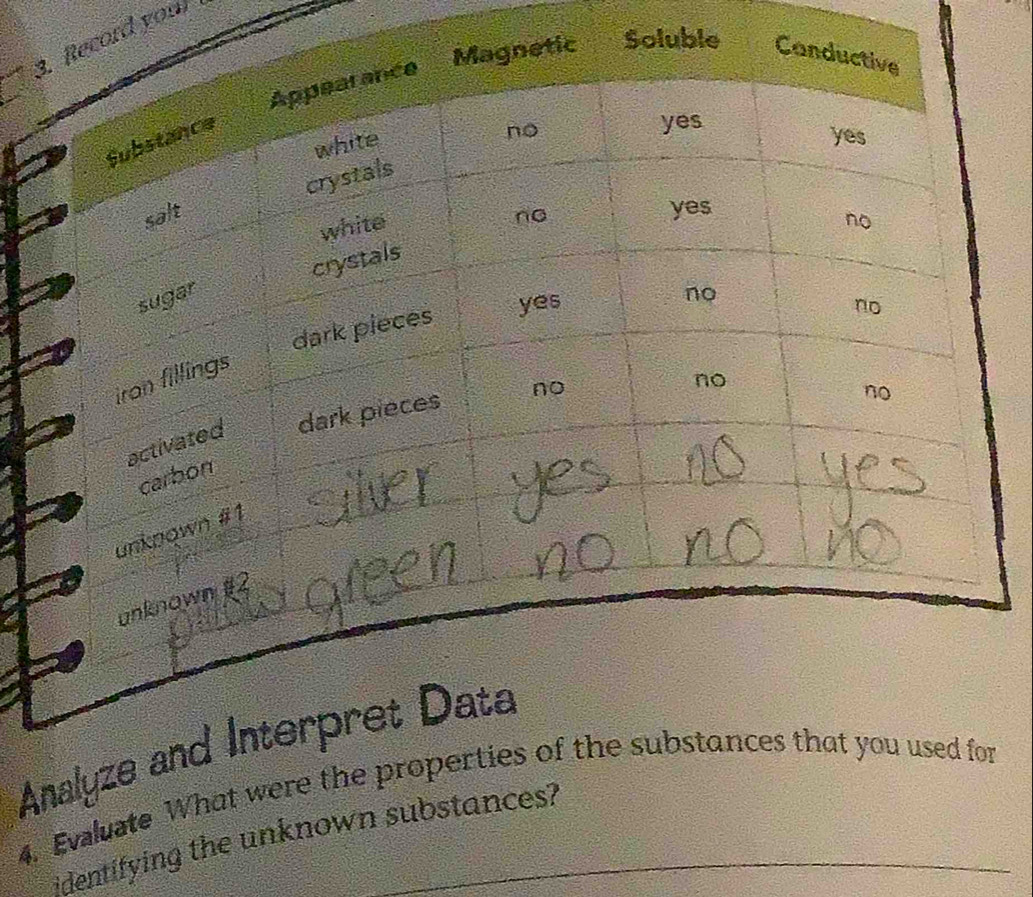 3. Record your
Substance Appearance Magnetic Soluble Conductive
salt white crystals no yes yes
sugar white crystals no yes no
iron fillings dark pieces yes no no
activated carbon dark pieces no no no
unknown #1 silver yes no yes
unknown #2 green no no no
Analyze and Interpret Data
4. Evaluate What were the properties of the substances that you used for
identifying the unknown substances?